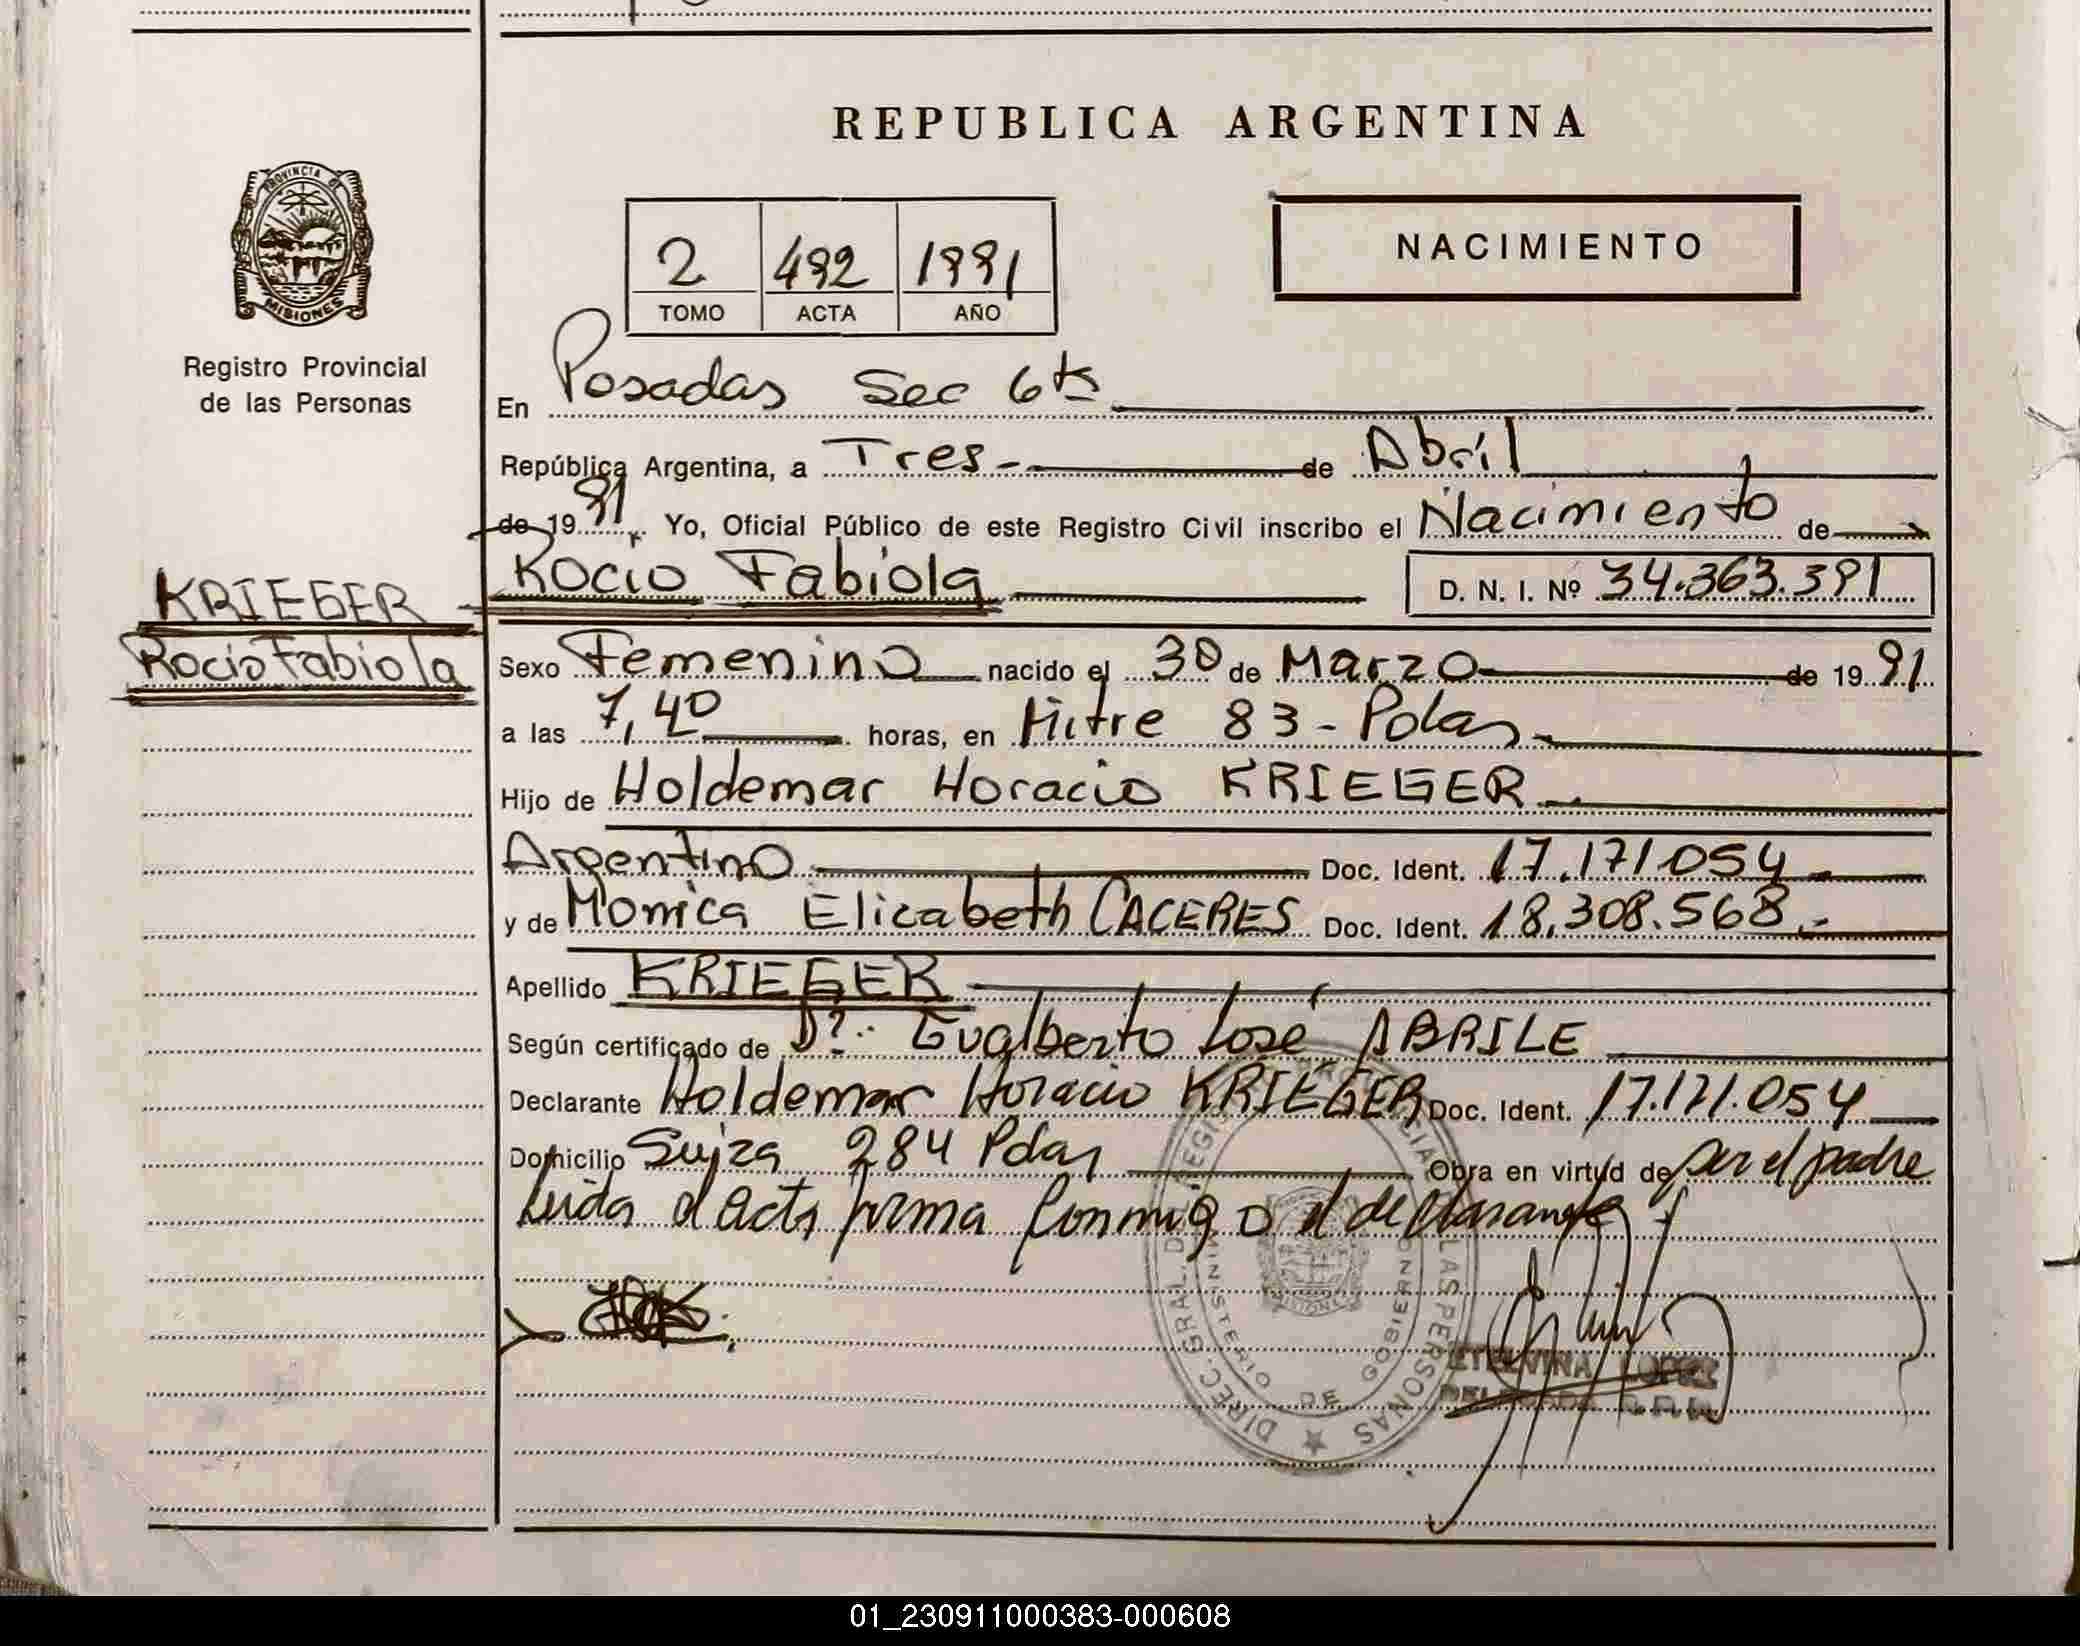 REPUBLICA ARGENTINA
PROVINCIA DE
MISIONES
Registro Provincial
de las Personas
2 492 1991
TOMO ACTA AÑO
NACIMIENTO
En Posadas Sec 6ta
República Argentina, a Tres de Abril
de 19 91. Yo, Oficial Público de este Registro Civil inscribo el Nacimiento de
Rocio Fabiola D. N. I. Nº 34.363.391
KRIEGER
Rocio Fabiola
Sexo Femenino nacido el 30 de Marzo de 19 91
a las 7,40 horas, en Mitre 83 - Pdas
Hijo de Holdemar Horacio KRIEGER
Argentino Doc. Ident. 17.171.054
y de Monica Elizabeth CACERES Doc. Ident. 18.308.568
Apellido KRIEGER
Según certificado de Dr. Gualberto José ABRILE
Declarante Holdemar Horacio KRIEGER Doc. Ident. 17.171.054
Domicilio Suiza 284 Pdas Obra en virtud de ser el padre
Leida el acta firma conmigo el declarante
DIREC. GRAL. DE REGISTRO PROVINCIAL DE LAS PERSONAS
MINISTERIO DE GOBIERNO
MISIONES
ETELVINA LOPEZ
DELEGADA
01_230911000383-000608